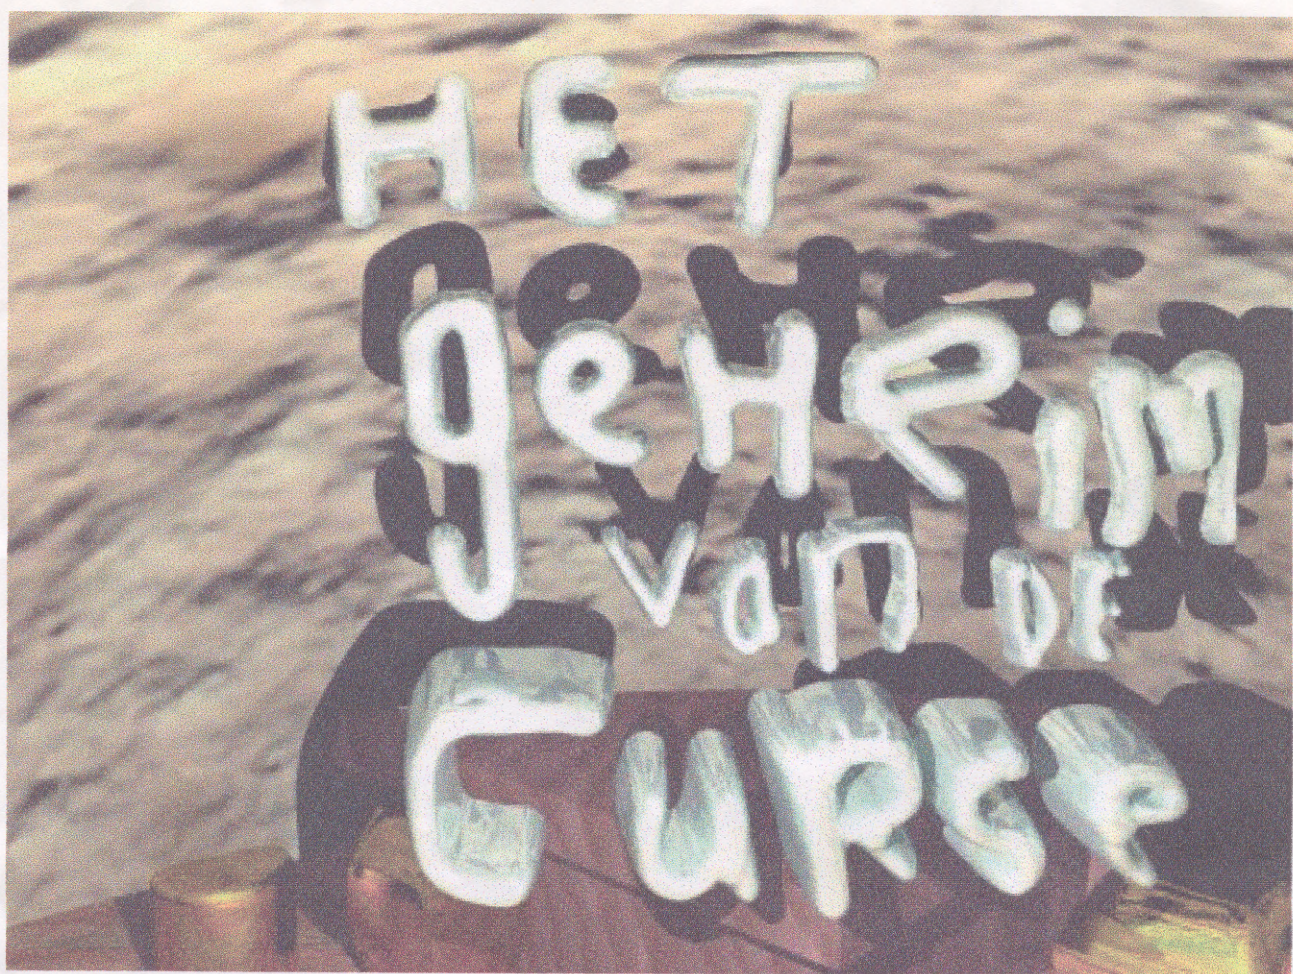 HET
geHeim
van DE
CuRse